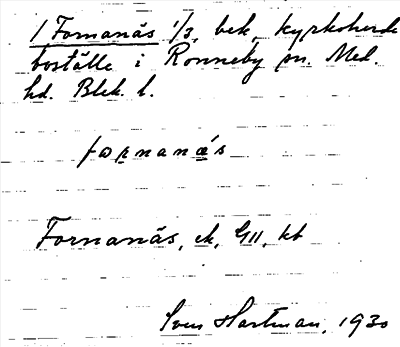 1 Fornanäs 1/3, bek, kyrkoherde
boställe i Ronneby sn. Med.
hd. Blek. l.
fornanás
Fornanäs, ek, GII, kt
Sven Hartman, 1930